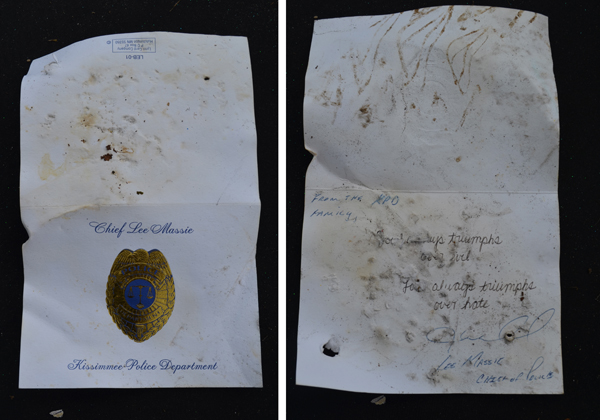 LEB-01
Chief Lee Massie
POLICE
Kissimmee Police Department
From the KPD
Family
Good always triumphs
over evil
Love always triumphs
over hate
Lee Massie
Chief of Police